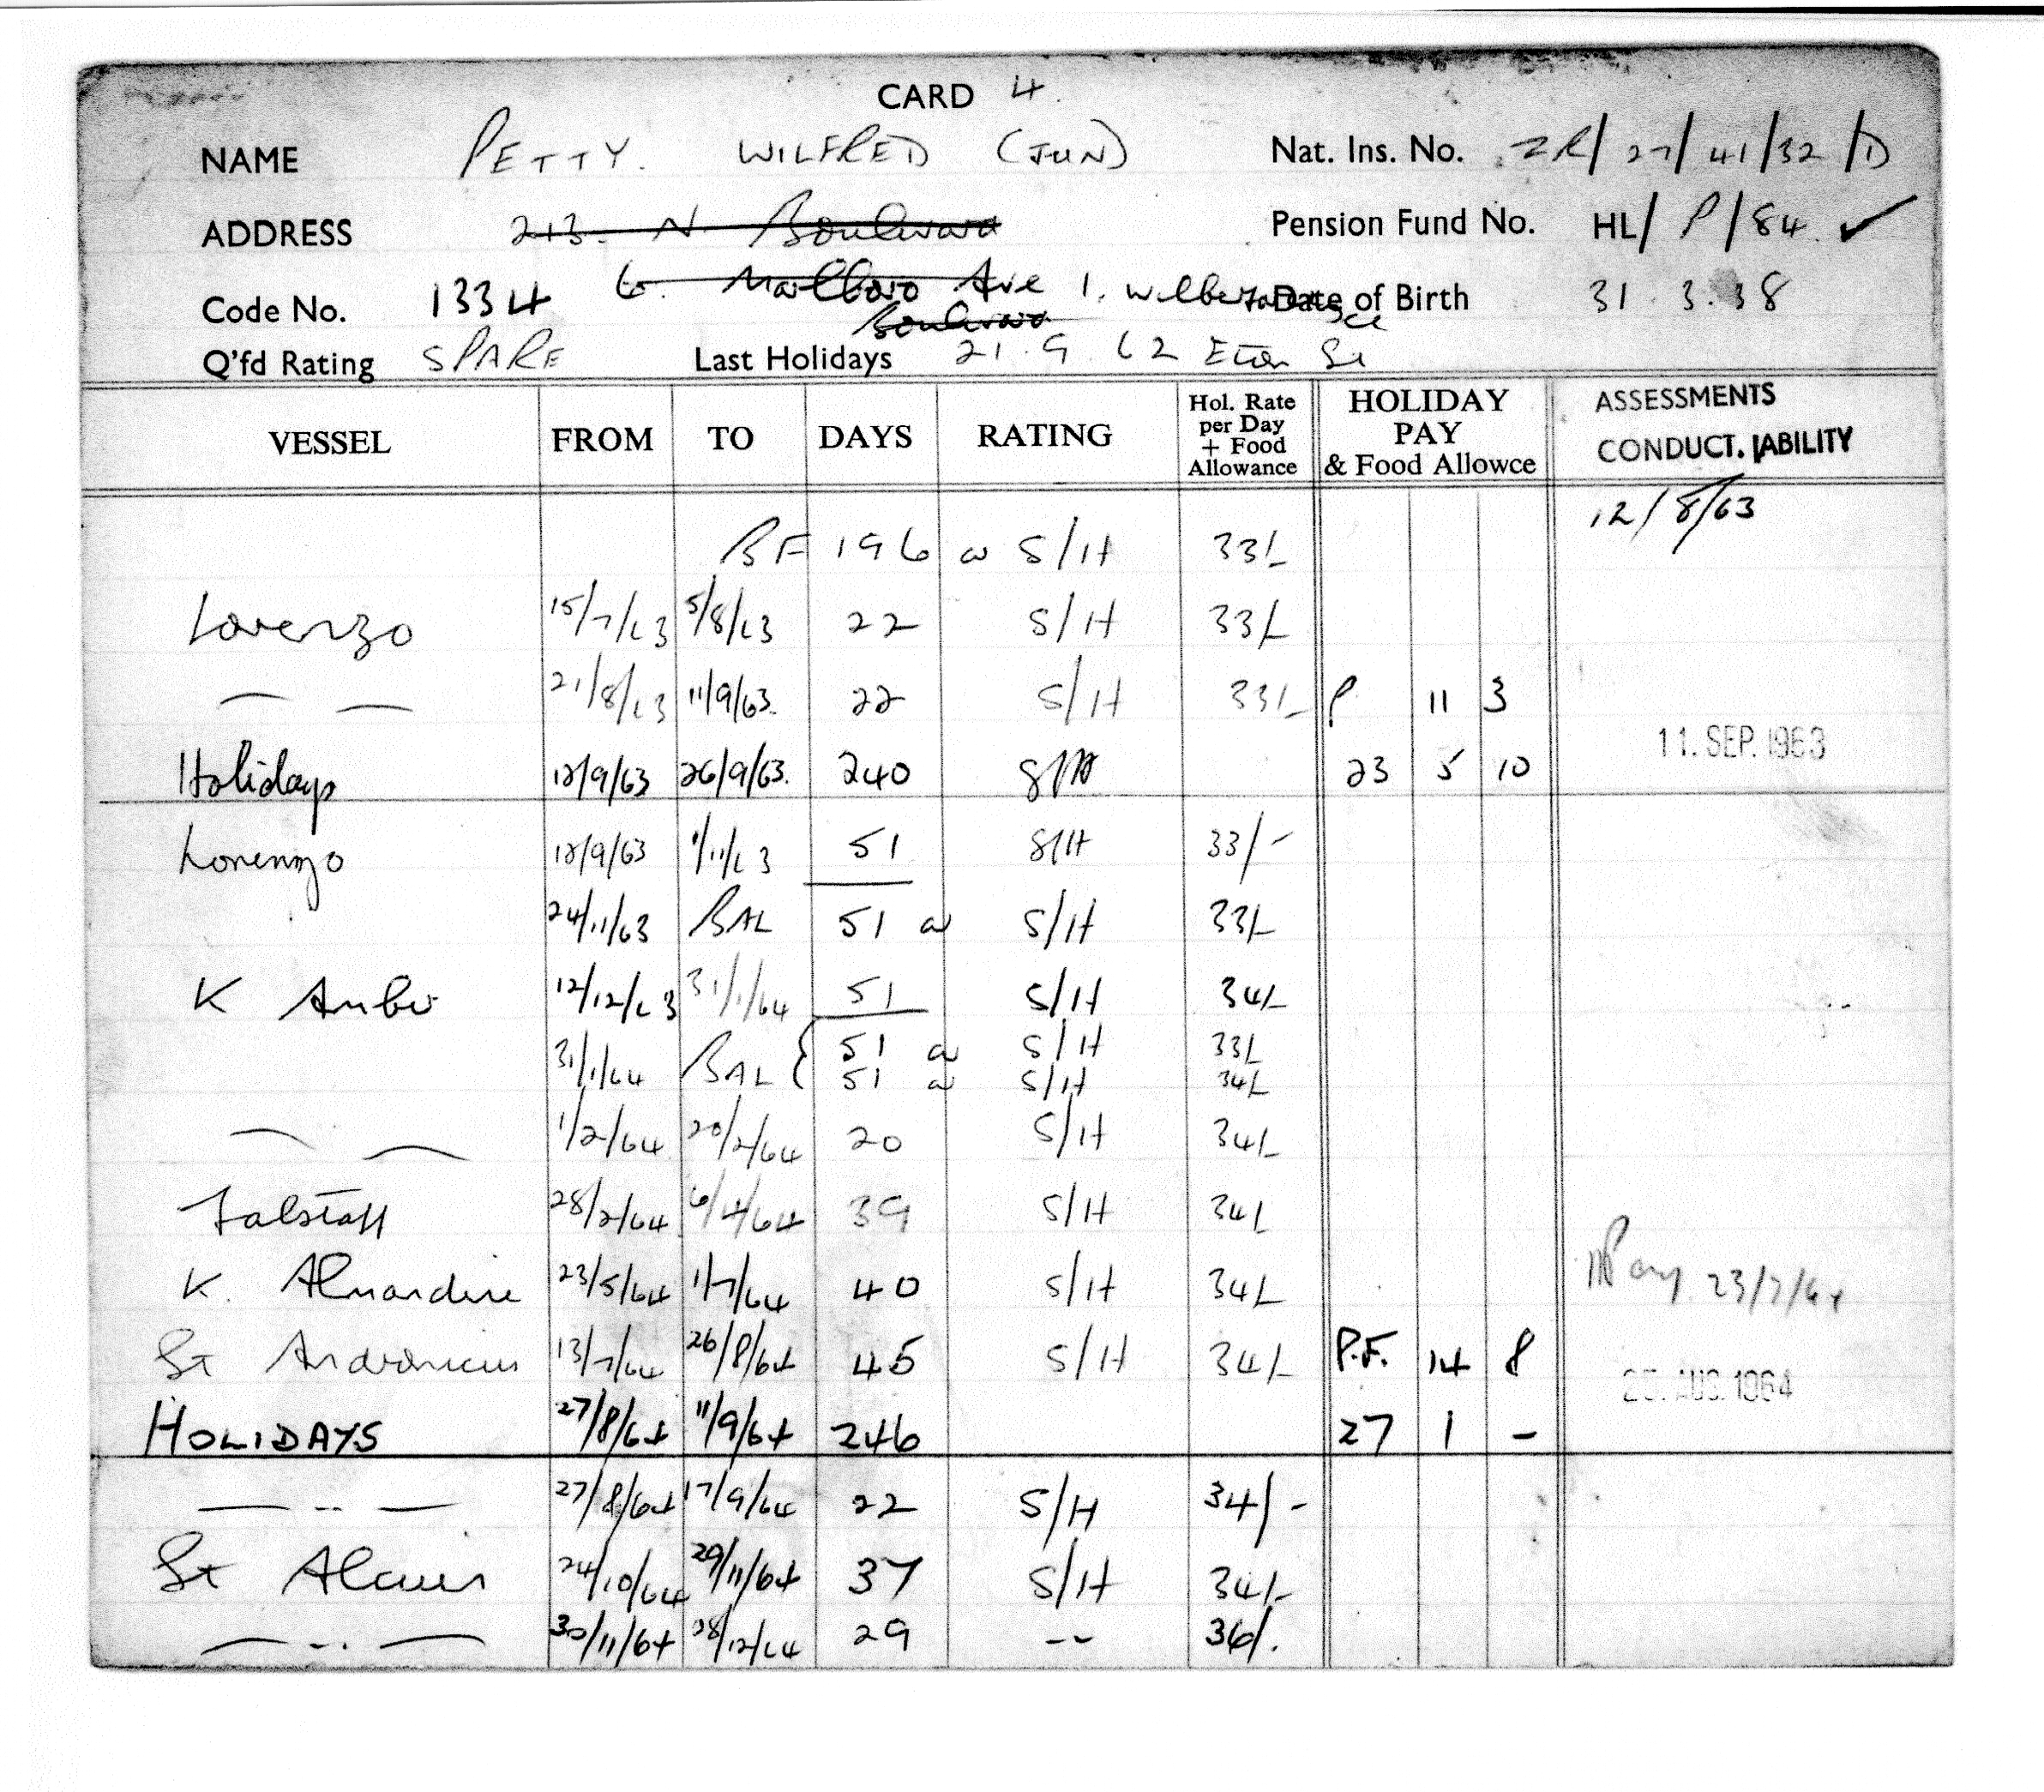 CARD 4
NAME PETTY. WILFRED (JUN) Nat. Ins. No. ZR/27/41/32/D
ADDRESS 213. N. Boulevard Pension Fund No. HL/P/84 ✓
Code No. 1334 6. Marlboro Ave 1. Date of Birth 31.3.38
Boulevard
Q'fd Rating SPARE Last Holidays 21.9.62 Eton St
VESSEL FROM TO DAYS RATING Hol. Rate per Day + Food Allowance HOLIDAY PAY & Food Allowce ASSESSMENTS CONDUCT. ABILITY
12/8/63
BF 196 @ S/H 33/-
Lorenzo 15/7/63 5/8/63 22 S/H 33/-
— — 21/8/63 11/9/63. 22 S/H 33/- P 11 3
11. SEP. 1963
Holidays 12/9/63 26/9/63. 240 S/H 23 5 10
Lorenzo 12/9/63 1/11/63 51 S/H 33/-
24/11/63 BAL 51 @ S/H 33/-
K 12/12/63 31/1/64 51 S/H 34/-
31/1/64 BAL { 51 @ S/H 33/-
51 @ S/H 34/-
— — 1/2/64 20/2/64 20 S/H 34/-
Falstaff 28/2/64 6/4/64 39 S/H 34/-
K. Almandine 23/5/64 1/7/64 40 S/H 34/- 23/7/64
St Andronicus 13/7/64 26/8/64 45 S/H 34/- P.F. 14 8
AUG. 1964
HOLIDAYS 27/8/64 11/9/64 246 27 1 -
— .. — 27/8/64 17/9/64 22 S/H 34/-
St Alcuin 24/10/64 29/11/64 37 S/H 34/-
— .. — 30/11/64 28/12/64 29 -- 36/.